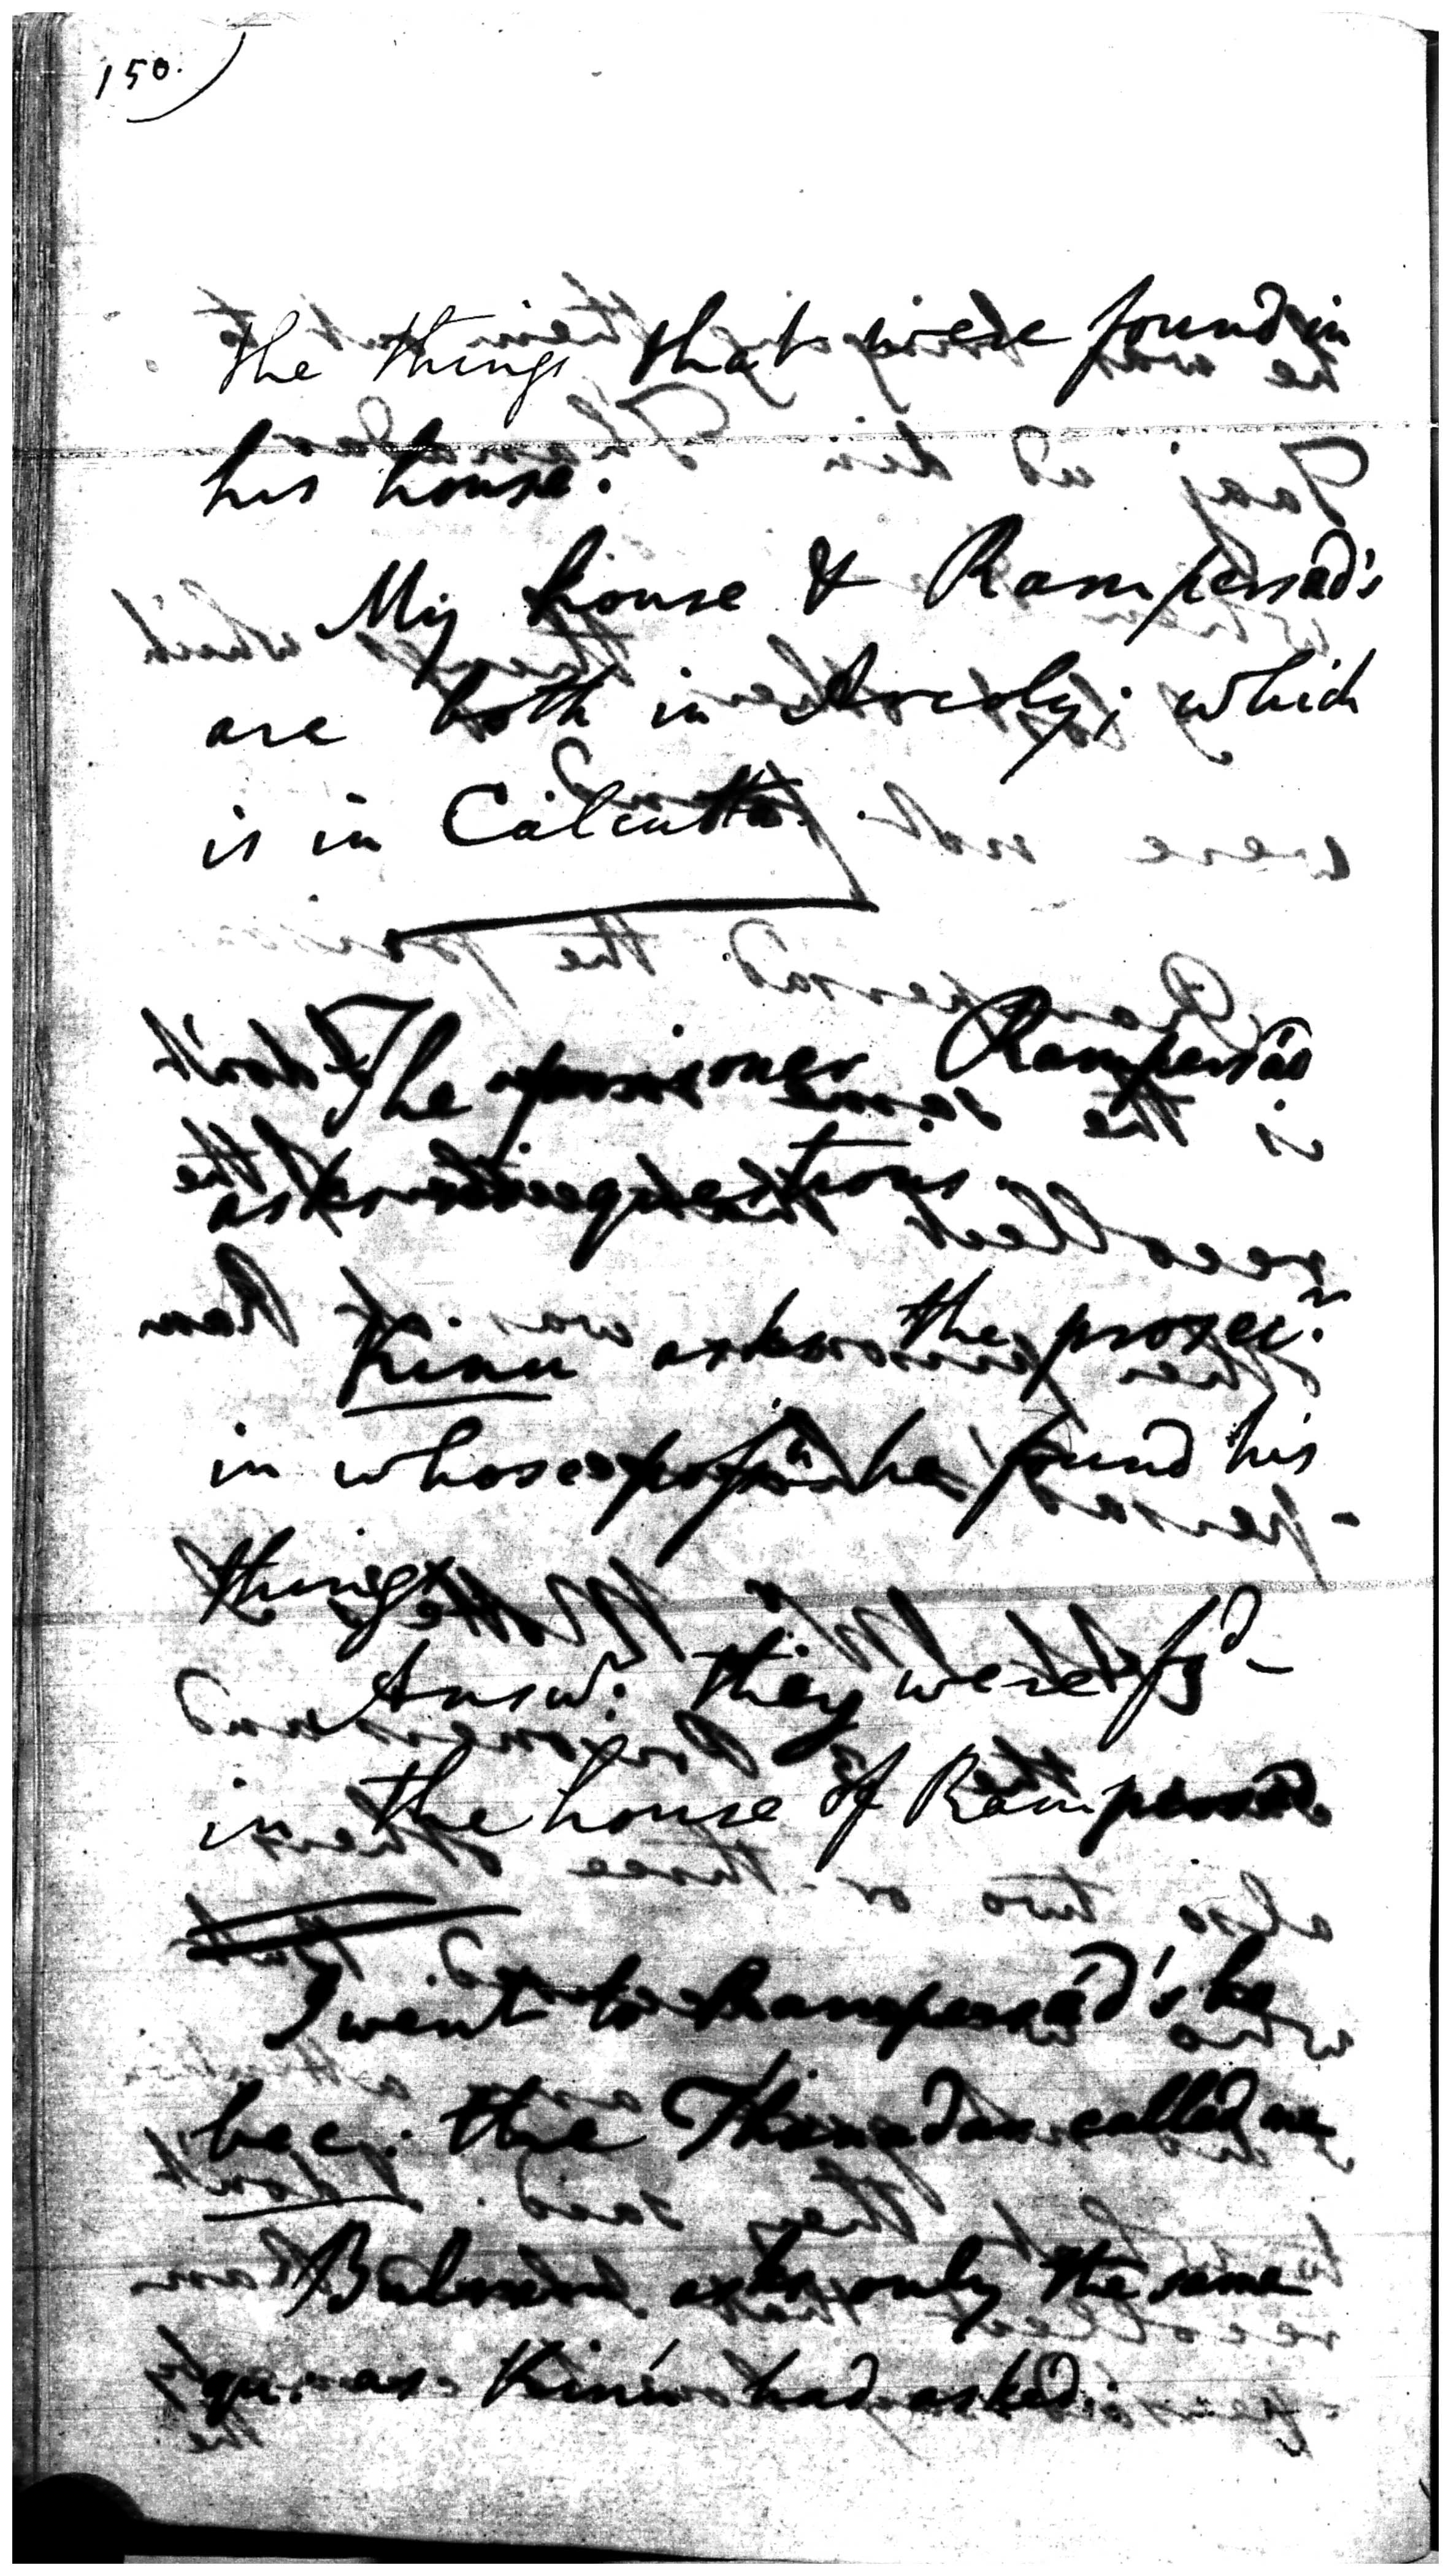 150.
the things that were found in
his house.
My house & Rampersad's
are both in Arcoly; which
is in Calcutta.
The prisoner Rampersad
asks no questions.
Kinu asks the prosecr.
in whose possn. he found his
things
Answ. they were fd
in the house of Rampersad.
I went to Rampersad's ho
bec. the Thanadar called me
asks only the same
qu. as Kinu had asked.